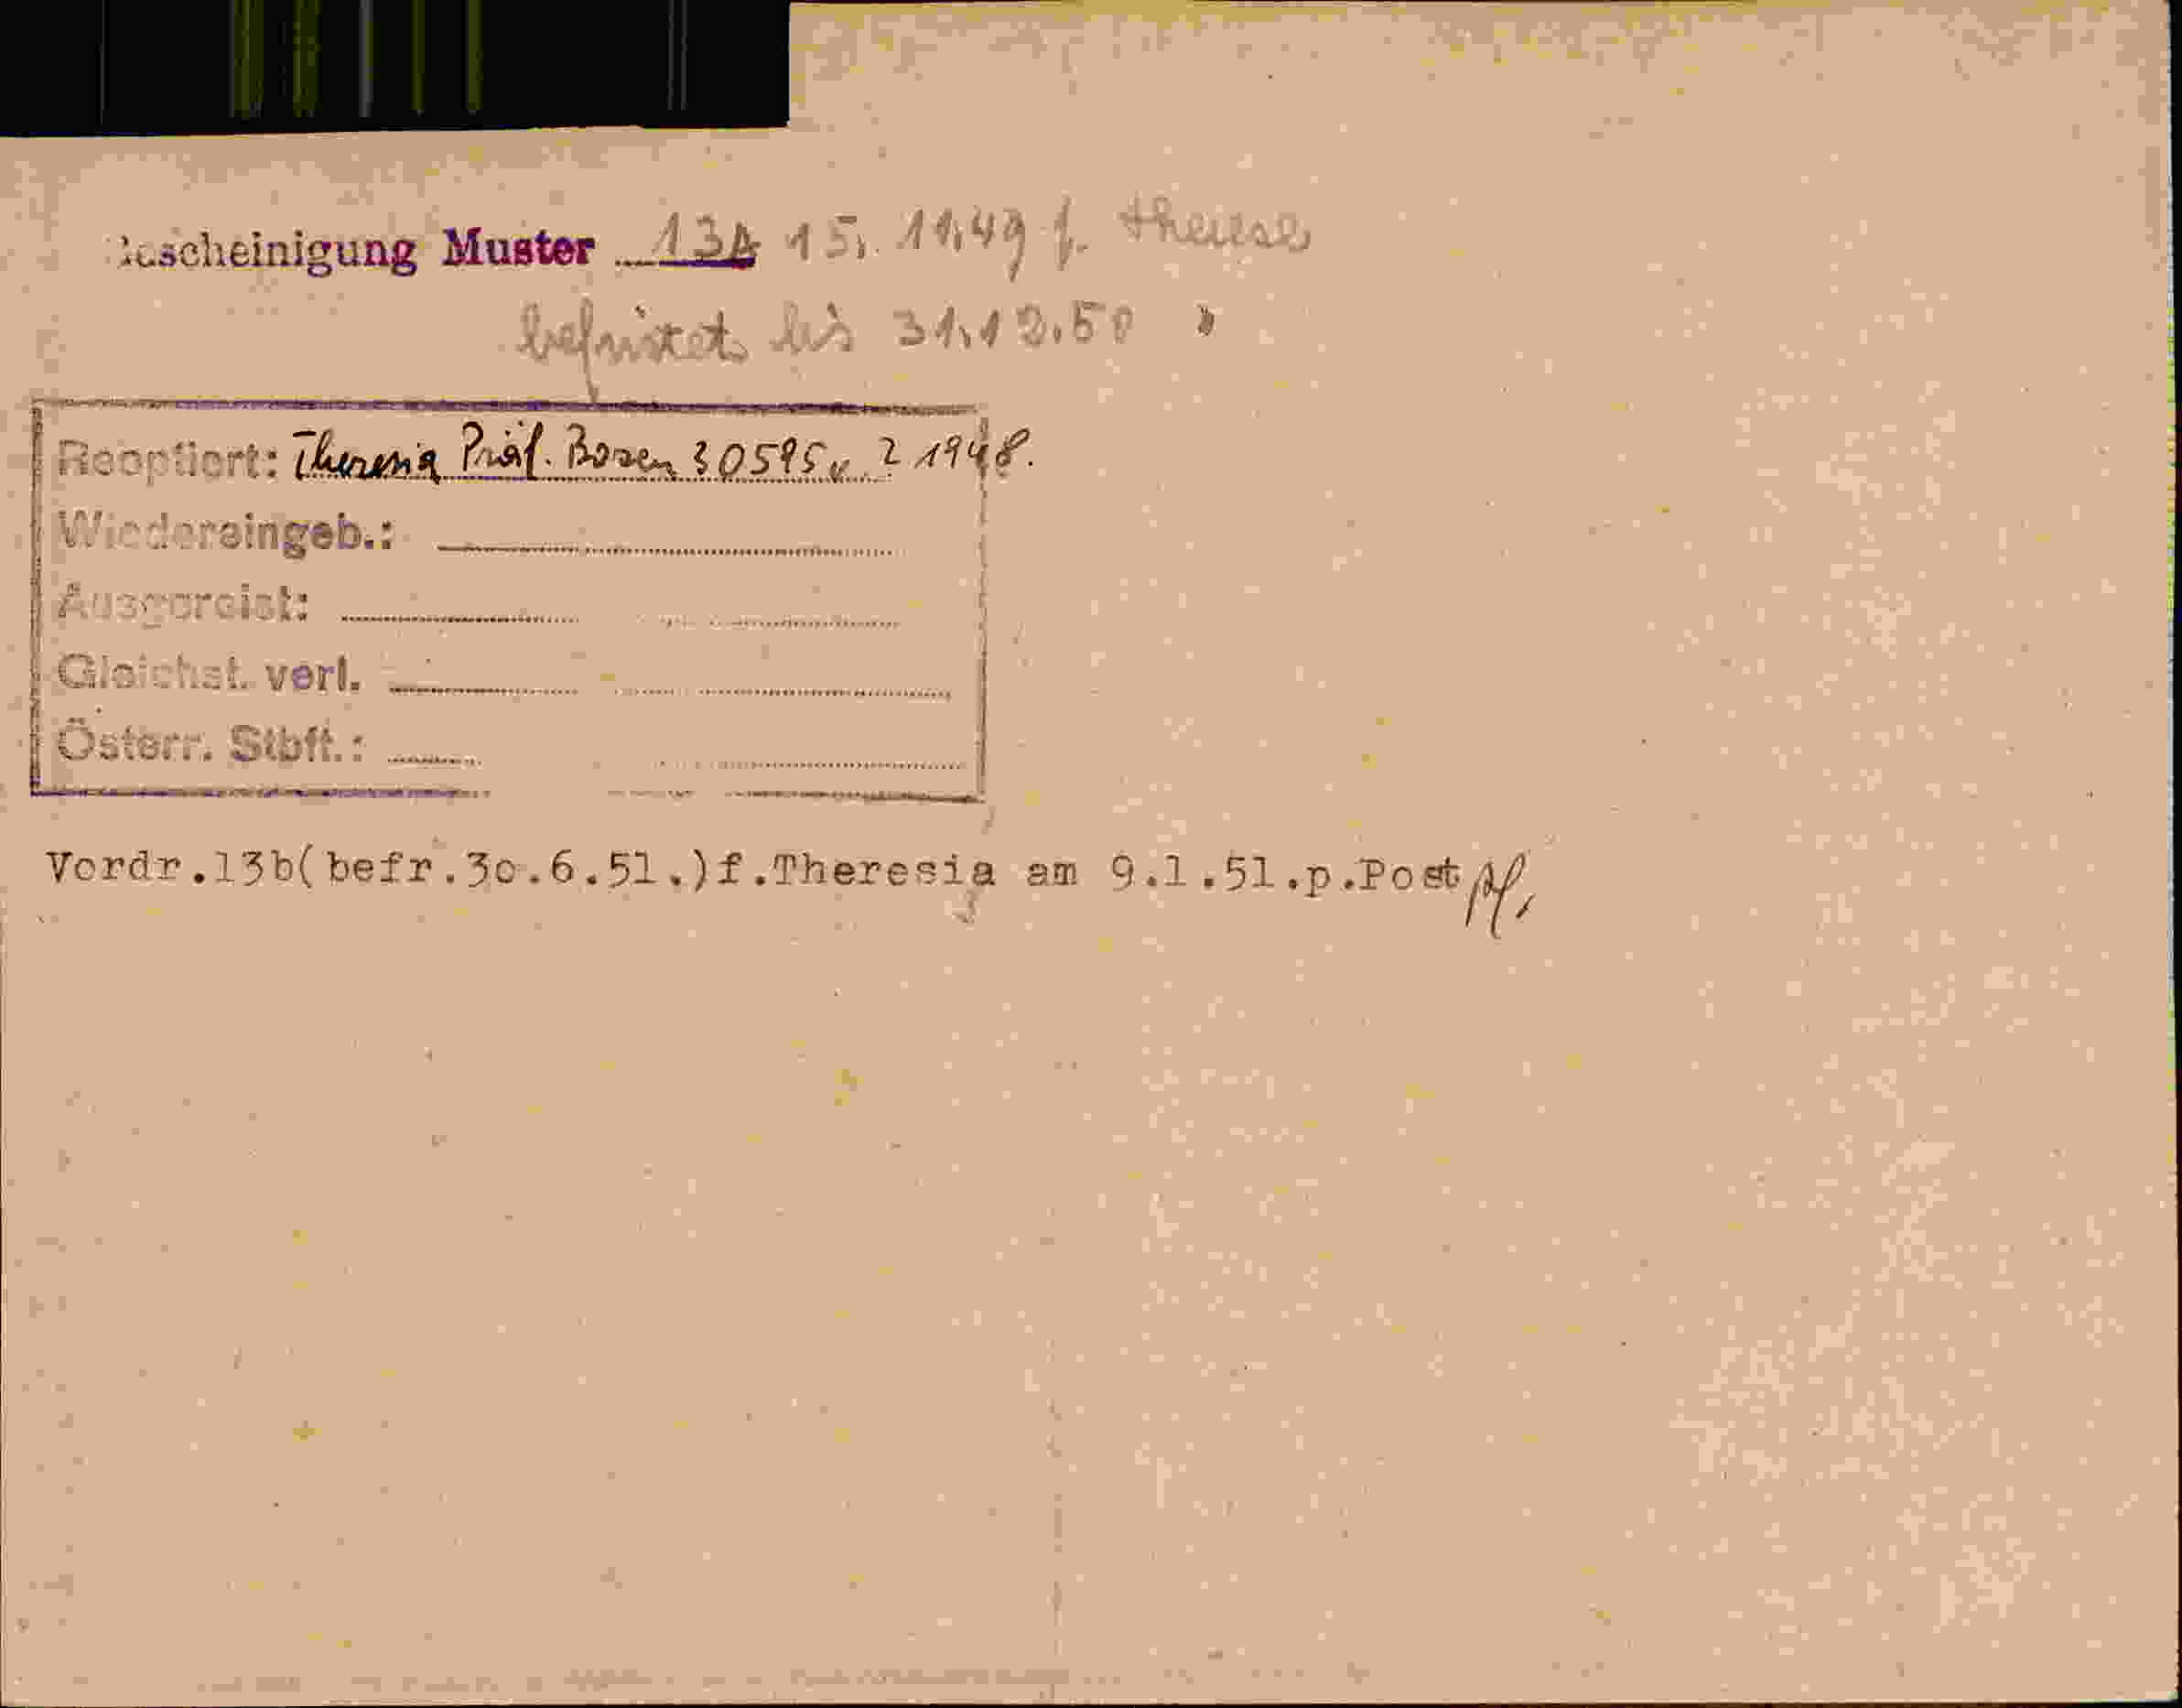 Bescheinigung Muster 13A 15.11.49 f. Therese
befristet bis 31.12.50 "
Reoptiert: Theresia Präf. Bozen 30595 v. 2 1948.
Wiedereingeb.:
Ausgereist:
Gleichst. verl.
Österr. Stbft.:
Vordr.13b(befr.30.6.51.)f.Theresia am 9.1.51.p.Post